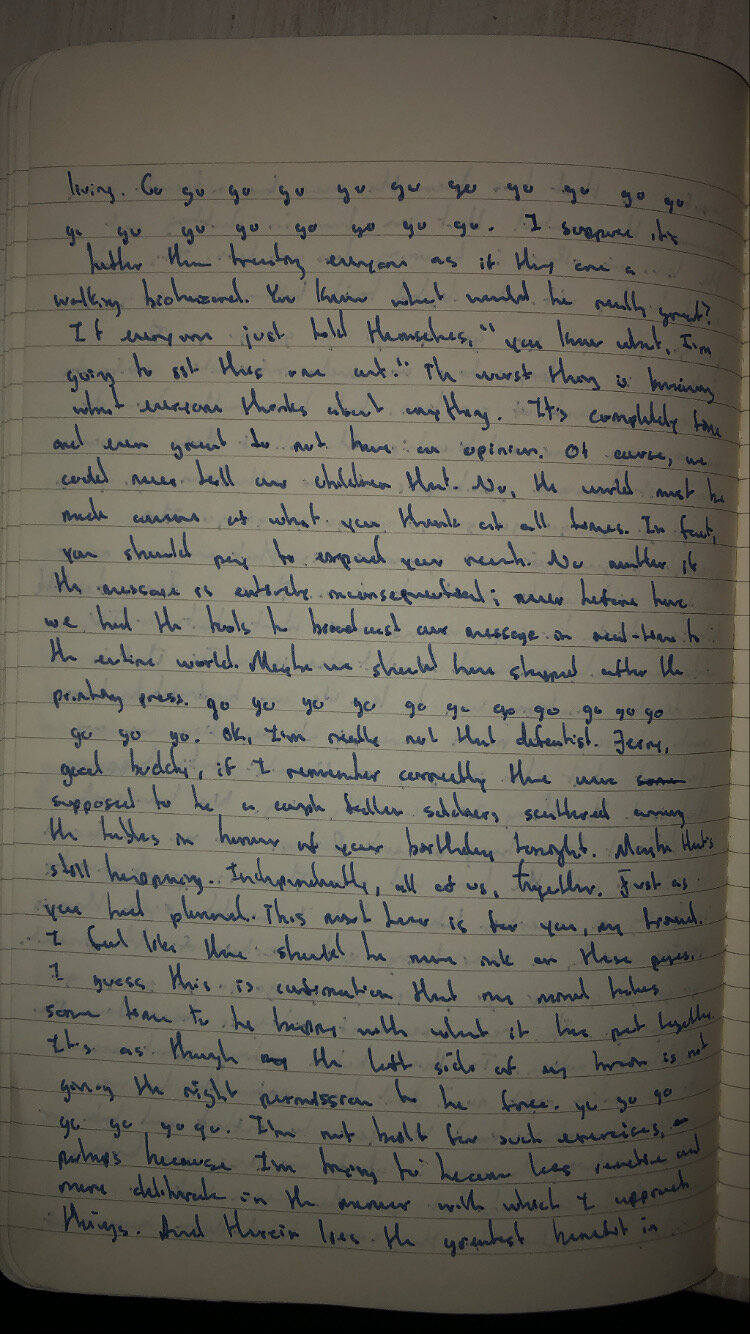 living. Go go go go go go go go go go go
go go go go go go go go. I suppose it's
better than treating everyone as if they are a
walking biohazard. You know what would be really great?
If everyone just told themselves, "you know what, I'm
going to sit this one out." The worst thing is knowing
what everyone thinks about anything. It's completely fine
and even great to not have an opinion. Of course, we
could never tell our children that. No, the world must be
made aware of what you think at all times. In fact,
you should pay to expand your reach. No matter if
the message is entirely inconsequential; never before have
we had the tools to broadcast our message in real-time to
the entire world. Maybe we should have stopped after the
printing press. go go go go go go go go go go go
go go go. Ok, I'm really not that defeatist. Jerry,
good buddy, if I remember correctly there were
supposed to be a couple fallen soldiers scattered among
the tables in honour of your birthday tonight. Maybe that's
still happening. Independently, all of us, together. Just as
you had planned. This next beer is for you, my friend.
I feel like there should be more ink on these pages.
I guess this is confirmation that my mind takes
some time to be happy with what it has put together.
It's as though the left side of my brain is not
giving the right permission to be free. go go go
go go go go. I'm not built for such exercises,
perhaps because I'm trying to become less reactive and
more deliberate in the manner with which I approach
things. And therein lies the greatest benefit in